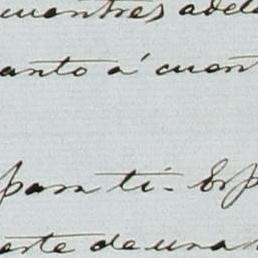 cuentres adel
anto á cuent
para ti. Esp
erte de una